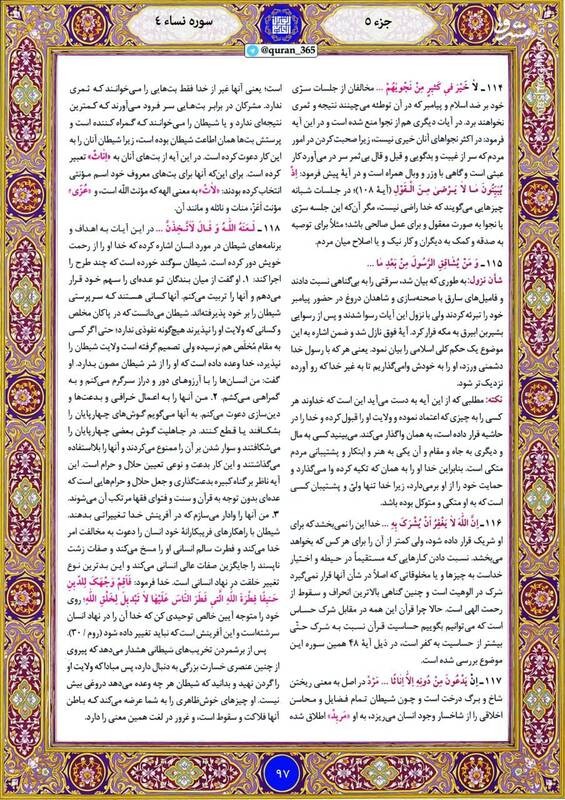 جزء ۵
سوره نساء ۴
@quran_365
۱۱۴ـ لَا خَیْرَ فِی کَثِیرٍ مِنْ نَجْوَیهُمْ ... مخالفان از جلسات سرّی
خود بر ضد اسلام و پیامبر که در آن توطئه می‌چینند نتیجه و ثمری
نخواهند برد. در آیات دیگری هم از نجوا منع شده است و در این آیه
فرمود: در اکثر نجواهای آنان خیری نیست، زیرا صحبت کردن در امور
مردم که سر از غیبت و بدگویی و قیل و قال بی‌ثمر سر در می‌آورد کار
عبثی است و گاهی با وزر و وبال همراه است و در آیهٔ پیش فرمود: إِذْ
یُبَیِّتُونَ مَا لَا یَرْضَىٰ مِنَ الْقَوْلِ (آیهٔ ۱۰۸)؛ در جلسات شبانه
چیزهایی می‌گویند که خدا راضی نیست، مگر آن‌که این جلسه سرّی
یا نجوا به صورت معقول و برای عمل صالحی باشد؛ مثلاً برای توصیه
به صدقه و کمک به دیگران و کار نیک و یا اصلاح میان مردم.
۱۱۵ـ وَ مَنْ یُشَاقِقِ الرَّسُولَ مِنْ بَعْدِ مَا ...
شأن نزول: به طوری که بیان شد، سرقتی را به بی‌گناهی نسبت دادند
و فامیل‌های سارق با صحنه‌سازی و شاهدان دروغ در حضور پیامبر
خود را تبرئه کردند ولی با نزول این آیات رسوا شدند و پس از رسوایی
بشیربن ابیرق به مکه فرار کرد. آیهٔ فوق نازل شد و ضمن اشاره به این
موضوع یک حکم کلی اسلامی را بیان نمود. یعنی هر که با رسول خدا
دشمنی ورزد، او را به خودش وامی‌گذاریم تا به غیر خدا که رو آورده
نزدیک‌تر شود.
نکته: مطلبی که از این آیه به دست می‌آید این است که خداوند هر
کسی را به چیزی که اعتماد نموده و ولایت او را قبول کرده و خدا را در
حاشیه قرار داده است، به همان واگذار می‌کند. می‌بینید کسی به مال
و دیگری به جاه و مقام و آن یکی به هنر و ابتکار و پشتیبانی مردم
متکی است. بنابراین خدا او را به همان که تکیه کرده وا می‌گذارد و
حمایت خود را از او برمی‌دارد، زیرا خدا تنها ولیّ و پشتیبان کسی
است که به او متکی و متوکل بوده باشد.
۱۱۶ـ إِنَّ اللهَ لَا یَغْفِرُ أَنْ یُشْرَكَ بِهِ ... خدا این را نمی‌بخشد که برای
او شریک قرار داده شود، ولی کمتر از آن را برای هر کس که بخواهد
می‌بخشد. نسبت دادن کارهایی که مستقیماً در حیطه و اختیار
خداست به چیزها و یا مخلوقاتی که اصلاً در شأن آنها قرار نمی‌گیرد
شرک در الوهیت است و چنین گناهی بالاترین انحراف و سقوط از
رحمت الهی است. حالا چرا قرآن این همه در مقابل شرک حساس
است که می‌توانیم بگوییم حساسیت قرآن نسبت به شرک حتّی
بیشتر از حساسیت به کفر است، در ذیل آیهٔ ۴۸ همین سوره این
موضوع بررسی شده است.
۱۱۷ـ إِنْ یَدْعُونَ مِنْ دُونِهِ إِلَّا إِنَاثًا ... مَرَدَ در اصل به معنی ریختن
شاخ و برگ درخت است و چون شیطان تمام فضایل و محاسن
اخلاقی را از شاخسار وجود انسان می‌ریزد، به او «مَرِید» اطلاق شده
است؛ یعنی آنها غیر از خدا فقط بت‌هایی را می‌خوانند که ثمری
ندارد. مشرکان در برابر بت‌هایی سر فرود می‌آورند که کمترین
نتیجه‌ای ندارد و یا شیطان را می‌خوانند که گمراه کننده است و
پرستش بت‌ها همان اطاعت شیطان بوده است، زیرا شیطان آنان را به
این کار دعوت کرده است. در این آیه از بت‌های آنان به «إناث» تعبیر
کرده است. برای این‌که آنها برای بت‌های معروف خود اسم مؤنثی
انتخاب کرده بودند: «لاتْ» به معنی الهه که مؤنث اللّه است، و «عُزّی»
مؤنث أعَزّ، منات و نائله و مانند آن.
۱۱۸ـ لَعَنَهُ اللهُ وَ قَالَ لَأَتَّخِذَنَّ ... در این آیات به اهداف و
برنامه‌های شیطان در مورد انسان اشاره کرده که خدا او را از رحمت
خویش دور کرده است. شیطان سوگند خورده است که چند طرح را
اجرا کند: ۱. او گفت از میان بندگان تو عده‌ای را سهم خود قرار
می‌دهم و آنها را تربیت می‌کنم. آنها کسانی هستند که سرپرستی
شیطان را بر خود پذیرفته‌اند. شیطان می‌دانست که در پاکان مخلص
و کسانی که ولایت او را نپذیرند هیچ‌گونه نفوذی ندارد؛ حتی اگر کسی
به مقام مُخلَص هم نرسیده ولی تصمیم گرفته است ولایت شیطان را
نپذیرد، خدا وعده داده است که او را از شر شیطان مصون بدارد. او
گفت: من انسان‌ها را با آرزوهای دور و دراز سرگرم می‌کنم و به
گمراهی می‌کشم. ۲. من آنها را به اعمال خرافی و بدعت‌ها و
دین‌سازی دعوت می‌کنم. به آنها می‌گویم گوش‌های چهارپایان را
بشکافند یا قطع کنند. در جاهلیت گوش بعضی چهارپایان را
می‌شکافتند و سوار شدن بر آن را ممنوع می‌کردند و آنها را بلااستفاده
می‌گذاشتند و این کار بدعت و نوعی تعیین حلال و حرام است. این
آیه ناظر بر گناه کبیره بدعت‌گذاری و جعل حلال و حرام‌هایی است که
عده‌ای بدون توجه به قرآن و سنت و فتوای فقها مرتکب آن می‌شوند.
۳. من آنها را وادار می‌سازم که در آفرینش خدا تغییراتی بدهند.
شیطان با راهکارهای فریبکارانهٔ خود انسان را دعوت به مخالفت امر
خدا می‌کند و فطرت سالم انسانی او را مسخ می‌کند و صفات زشت
ناپسند را جایگزین صفات عالی انسانی می‌کند و این بدترین نوع
تغییر خلقت در نهاد انسانی است. خدا فرمود: فَأَقِمْ وَجْهَكَ لِلدِّینِ
حَنِیفًا فِطْرَةَ اللهِ الَّتِی فَطَرَ النَّاسَ عَلَیْهَا لَا تَبْدِیلَ لِخَلْقِ اللهِ؛ روی
خود را متوجه آیین خالص توحیدی کن که خدا آن را در نهاد انسان
سرشته‌است و این آفرینشی است که نباید تغییر داده شود (روم / ۳۰).
پس از برشمردن تخریب‌های شیطانی هشدار می‌دهد که پیروی
از چنین عنصری خسارت بزرگی به دنبال دارد، پس مبادا که ولایت او
را گردن نهید و بدانید که شیطان هر چه وعده می‌دهد دروغی بیش
نیست. او چیزهای خوش‌ظاهری را به شما عرضه می‌کند که باطن
آنها فلاکت و سقوط است، و غرور در لغت همین معنی را دارد.
۹۷